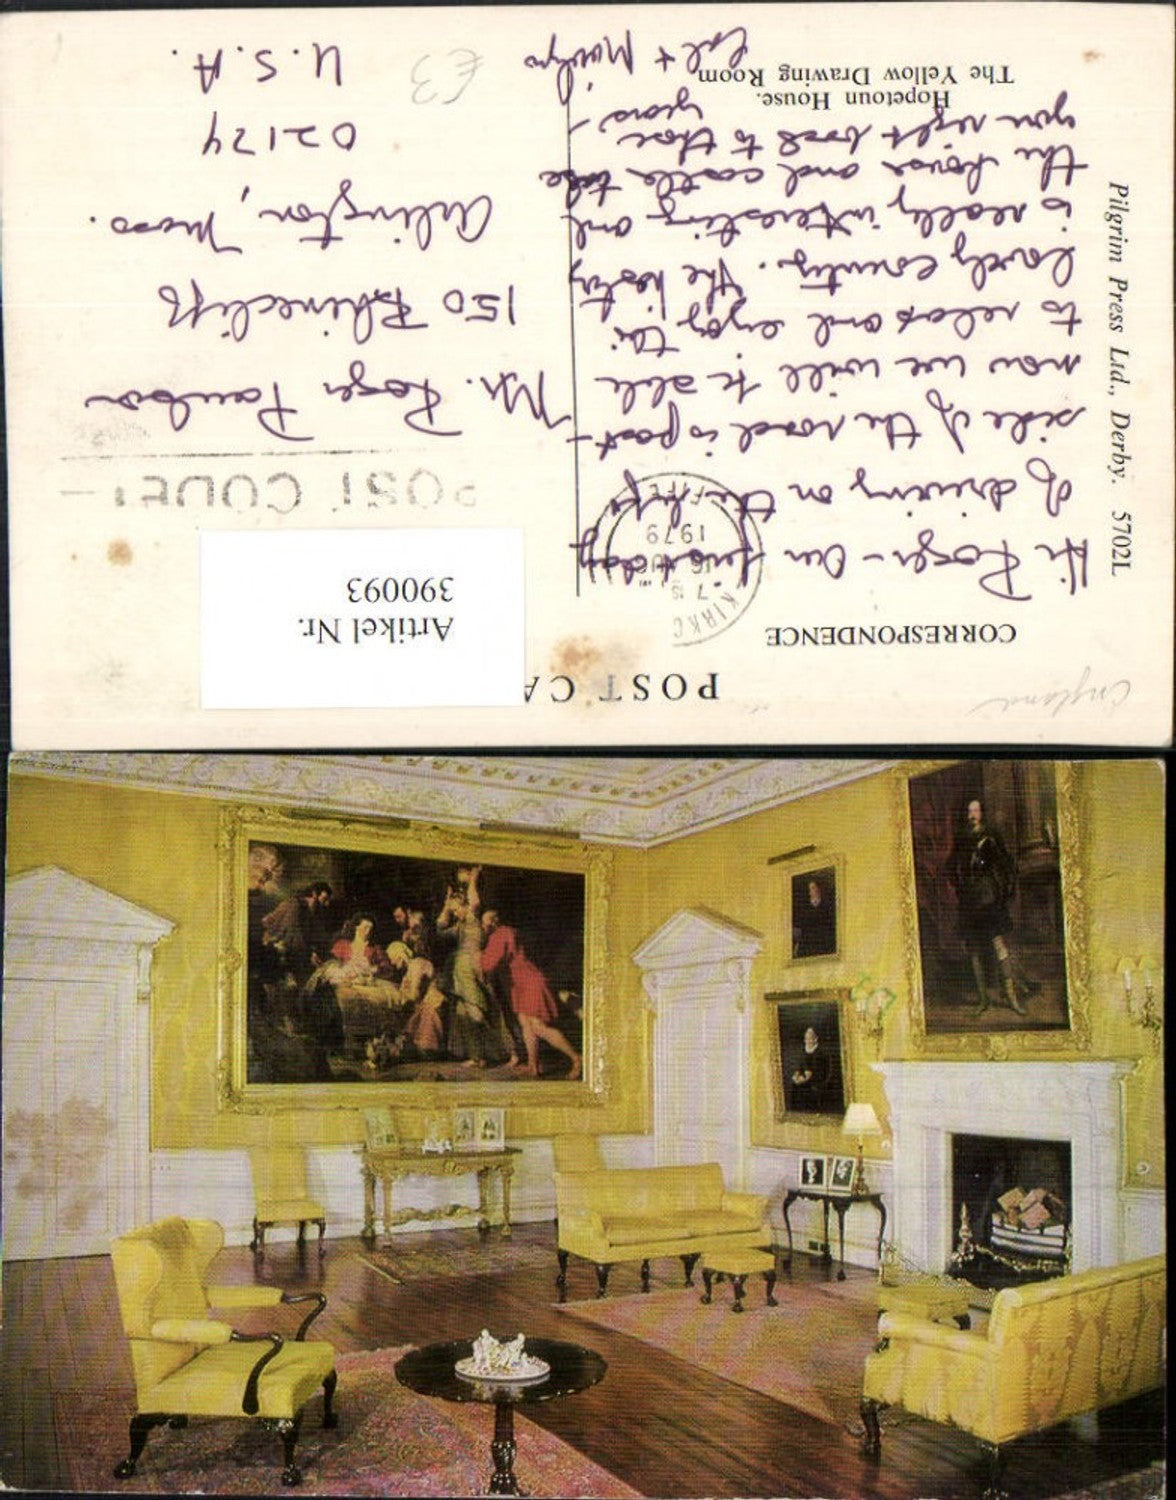 POST CA
England
CORRESPONDENCE
Artikel Nr.
390093
KIRKC
16
1979
FIFE
POST CODE
Hi Roger - Our first day
of driving on the left
side of the road is past -
now we will be able
to relax and enjoy this
lovely country. The history
is really interesting and
the house and castle take
you right back to those
years.
Cal + Marilyn
Mr. Roger
150 Rhinecliff
Arlington, Mass.
02174
U.S.A.
£3
Hopetoun House.
The Yellow Drawing Room
Pilgrim Press Ltd., Derby. 5702L